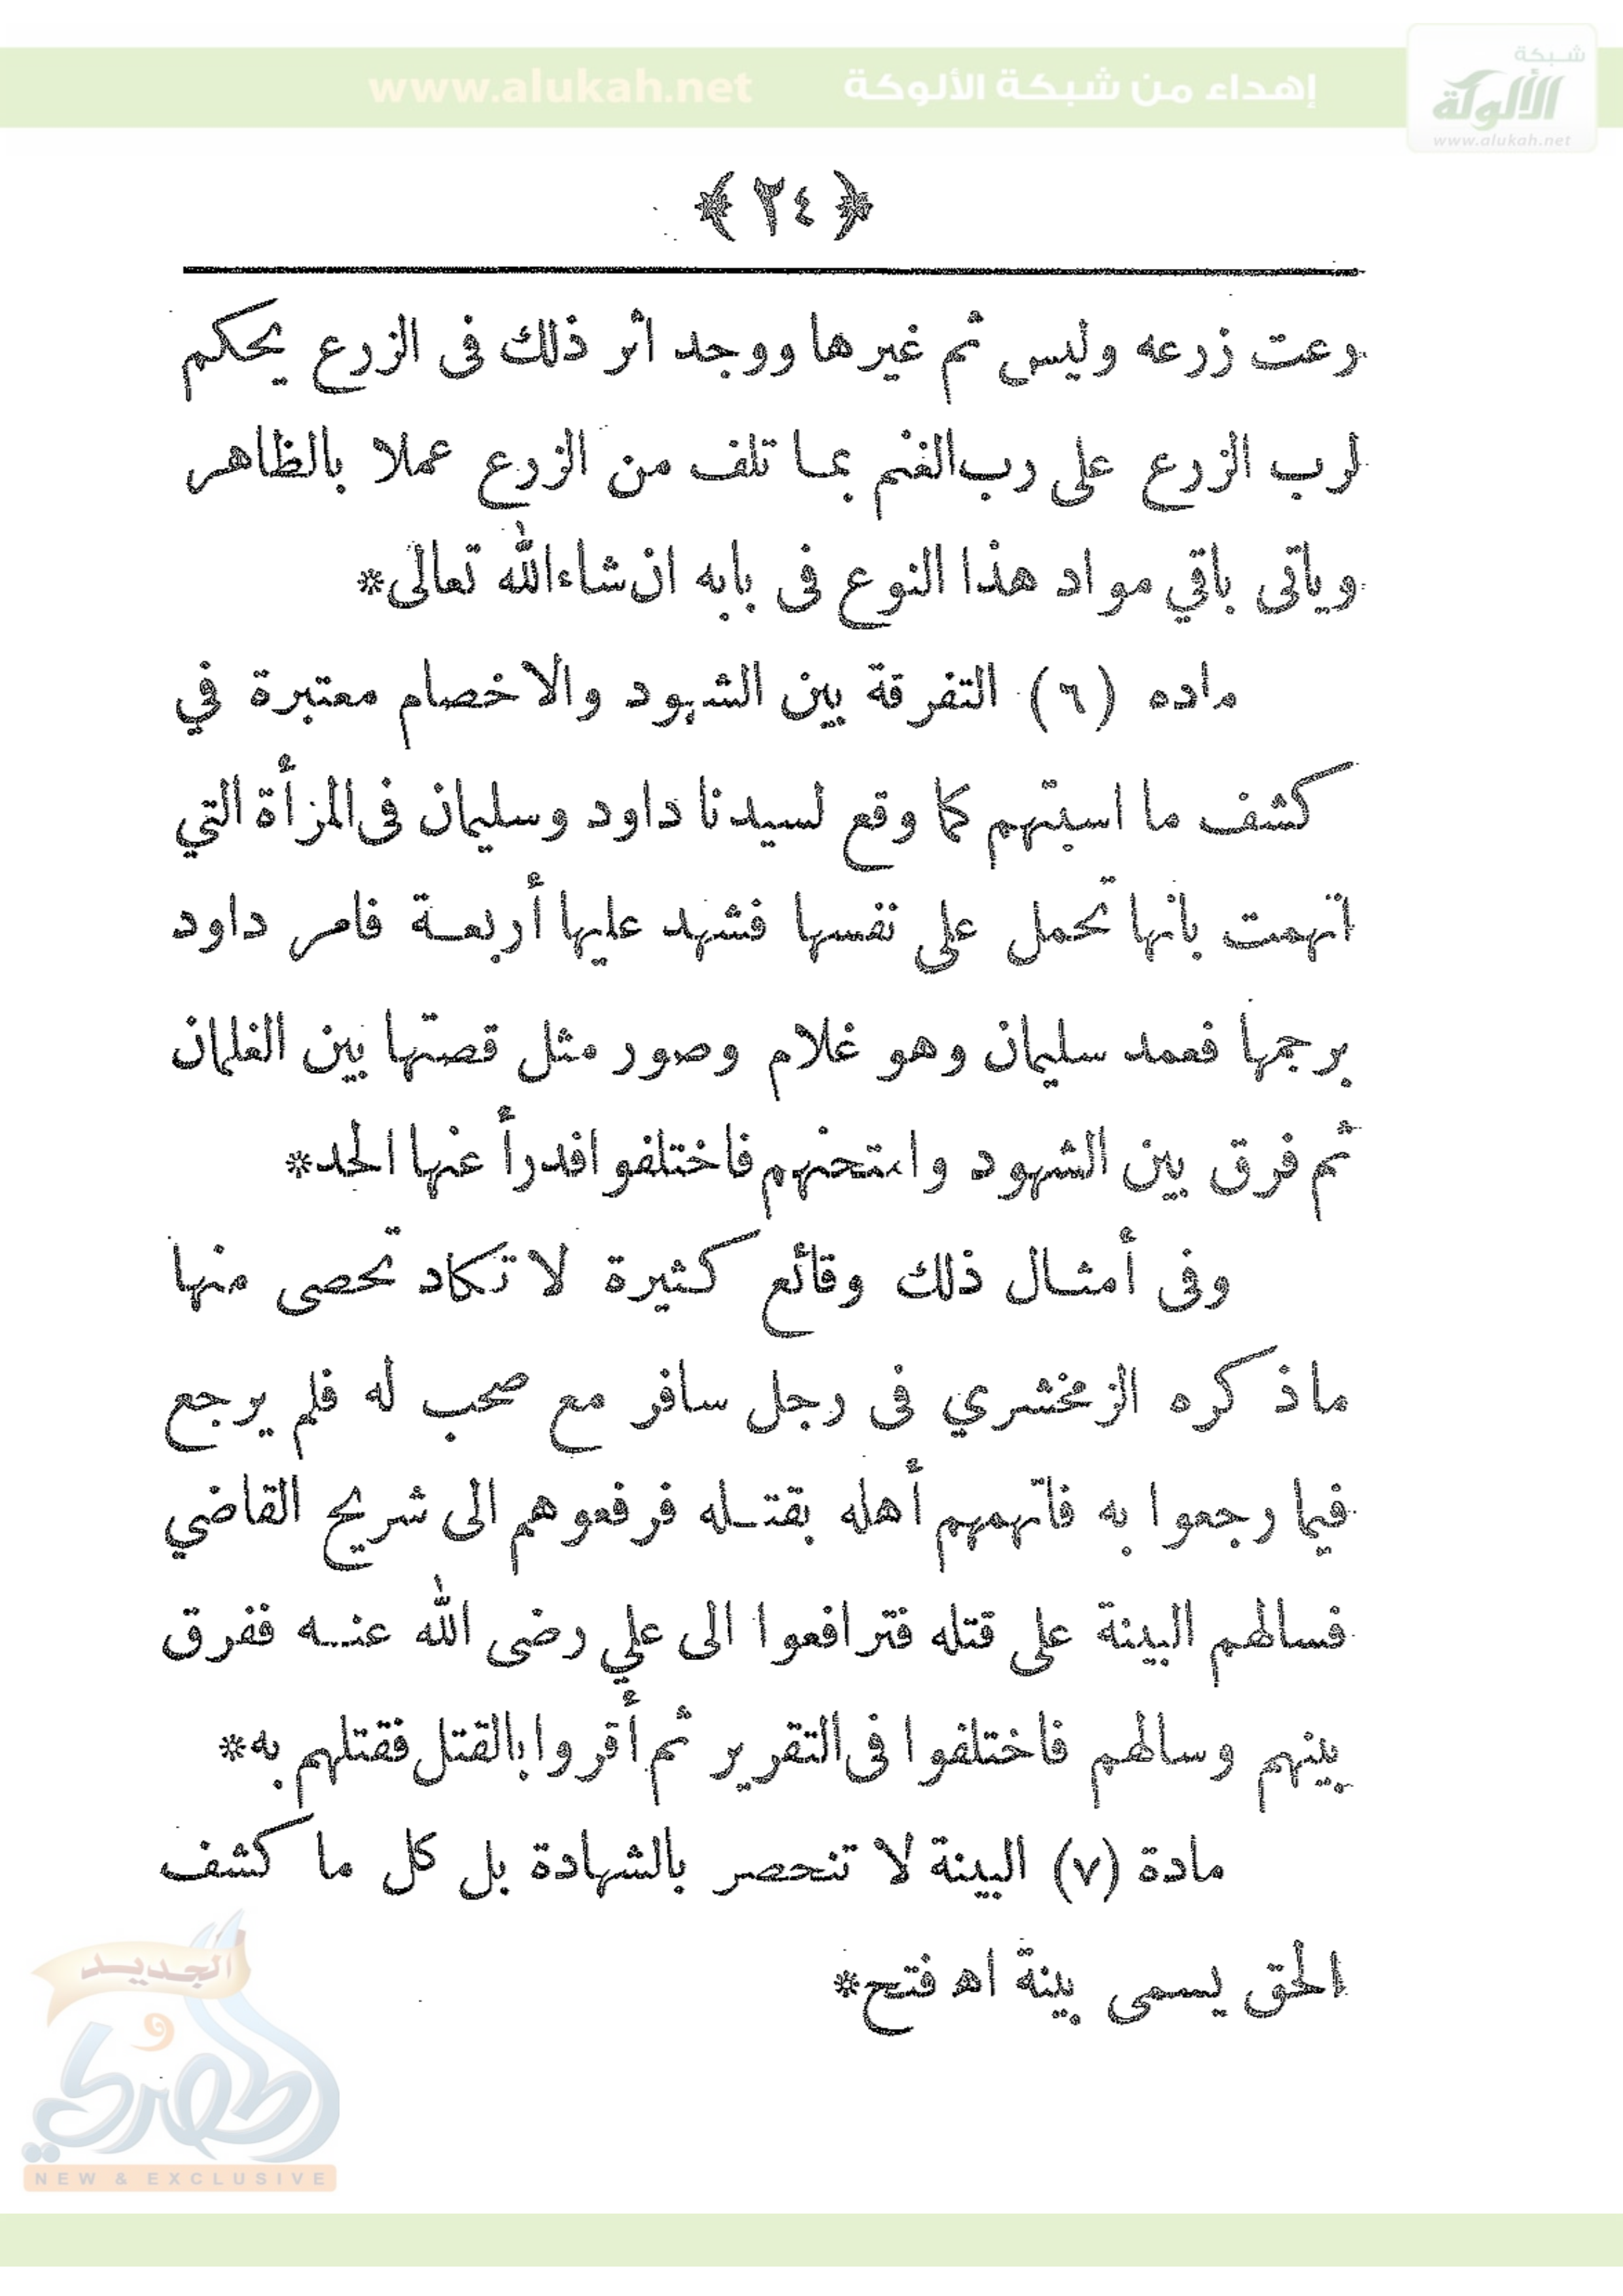 شبكة
الألوكة
www.alukah.net
إهداء من شبكة الألوكة www.alukah.net
﴿ ٢٤ ﴾
رعت زرعه وليس ثم غيرها ووجد اثر ذلك فى الزرع يحكم
لرب الزرع على رب الغنم بما تلف من الزرع عملا بالظاهر
وياتى باقي مواد هذا النوع فى بابه ان شاء الله تعالى*
ماده (٦) التفرقة بين الشهود والاخصام معتبرة في
كشف ما استبهم كما وقع لسيدنا داود وسليمان فى المرأة التي
اتهمت بانها تحمل على نفسها فشهد عليها أربعة فامر داود
برجمها فعمد سليمان وهو غلام وصور مثل قصتها بين الغلمان
ثم فرق بين الشهود وامتحنهم فاختلفوا فدرأ عنها الحد*
وفى أمثال ذلك وقائع كثيرة لا تكاد تحصى منها
ماذكره الزمخشري فى رجل سافر مع صحب له فلم يرجع
فيما رجعوا به فاتهمهم أهله بقتله فرفعوهم الى شريح القاضي
فسالهم البينة على قتله فترافعوا الى علي رضى الله عنه ففرق
بينهم وسالهم فاختلفوا فى التقرير ثم أقروا بالقتل فقتلهم به*
مادة (٧) البينة لا تنحصر بالشهادة بل كل ما كشف
الحق يسمى بينة اه فتح*
الجديد
و
الحصري
NEW & EXCLUSIVE